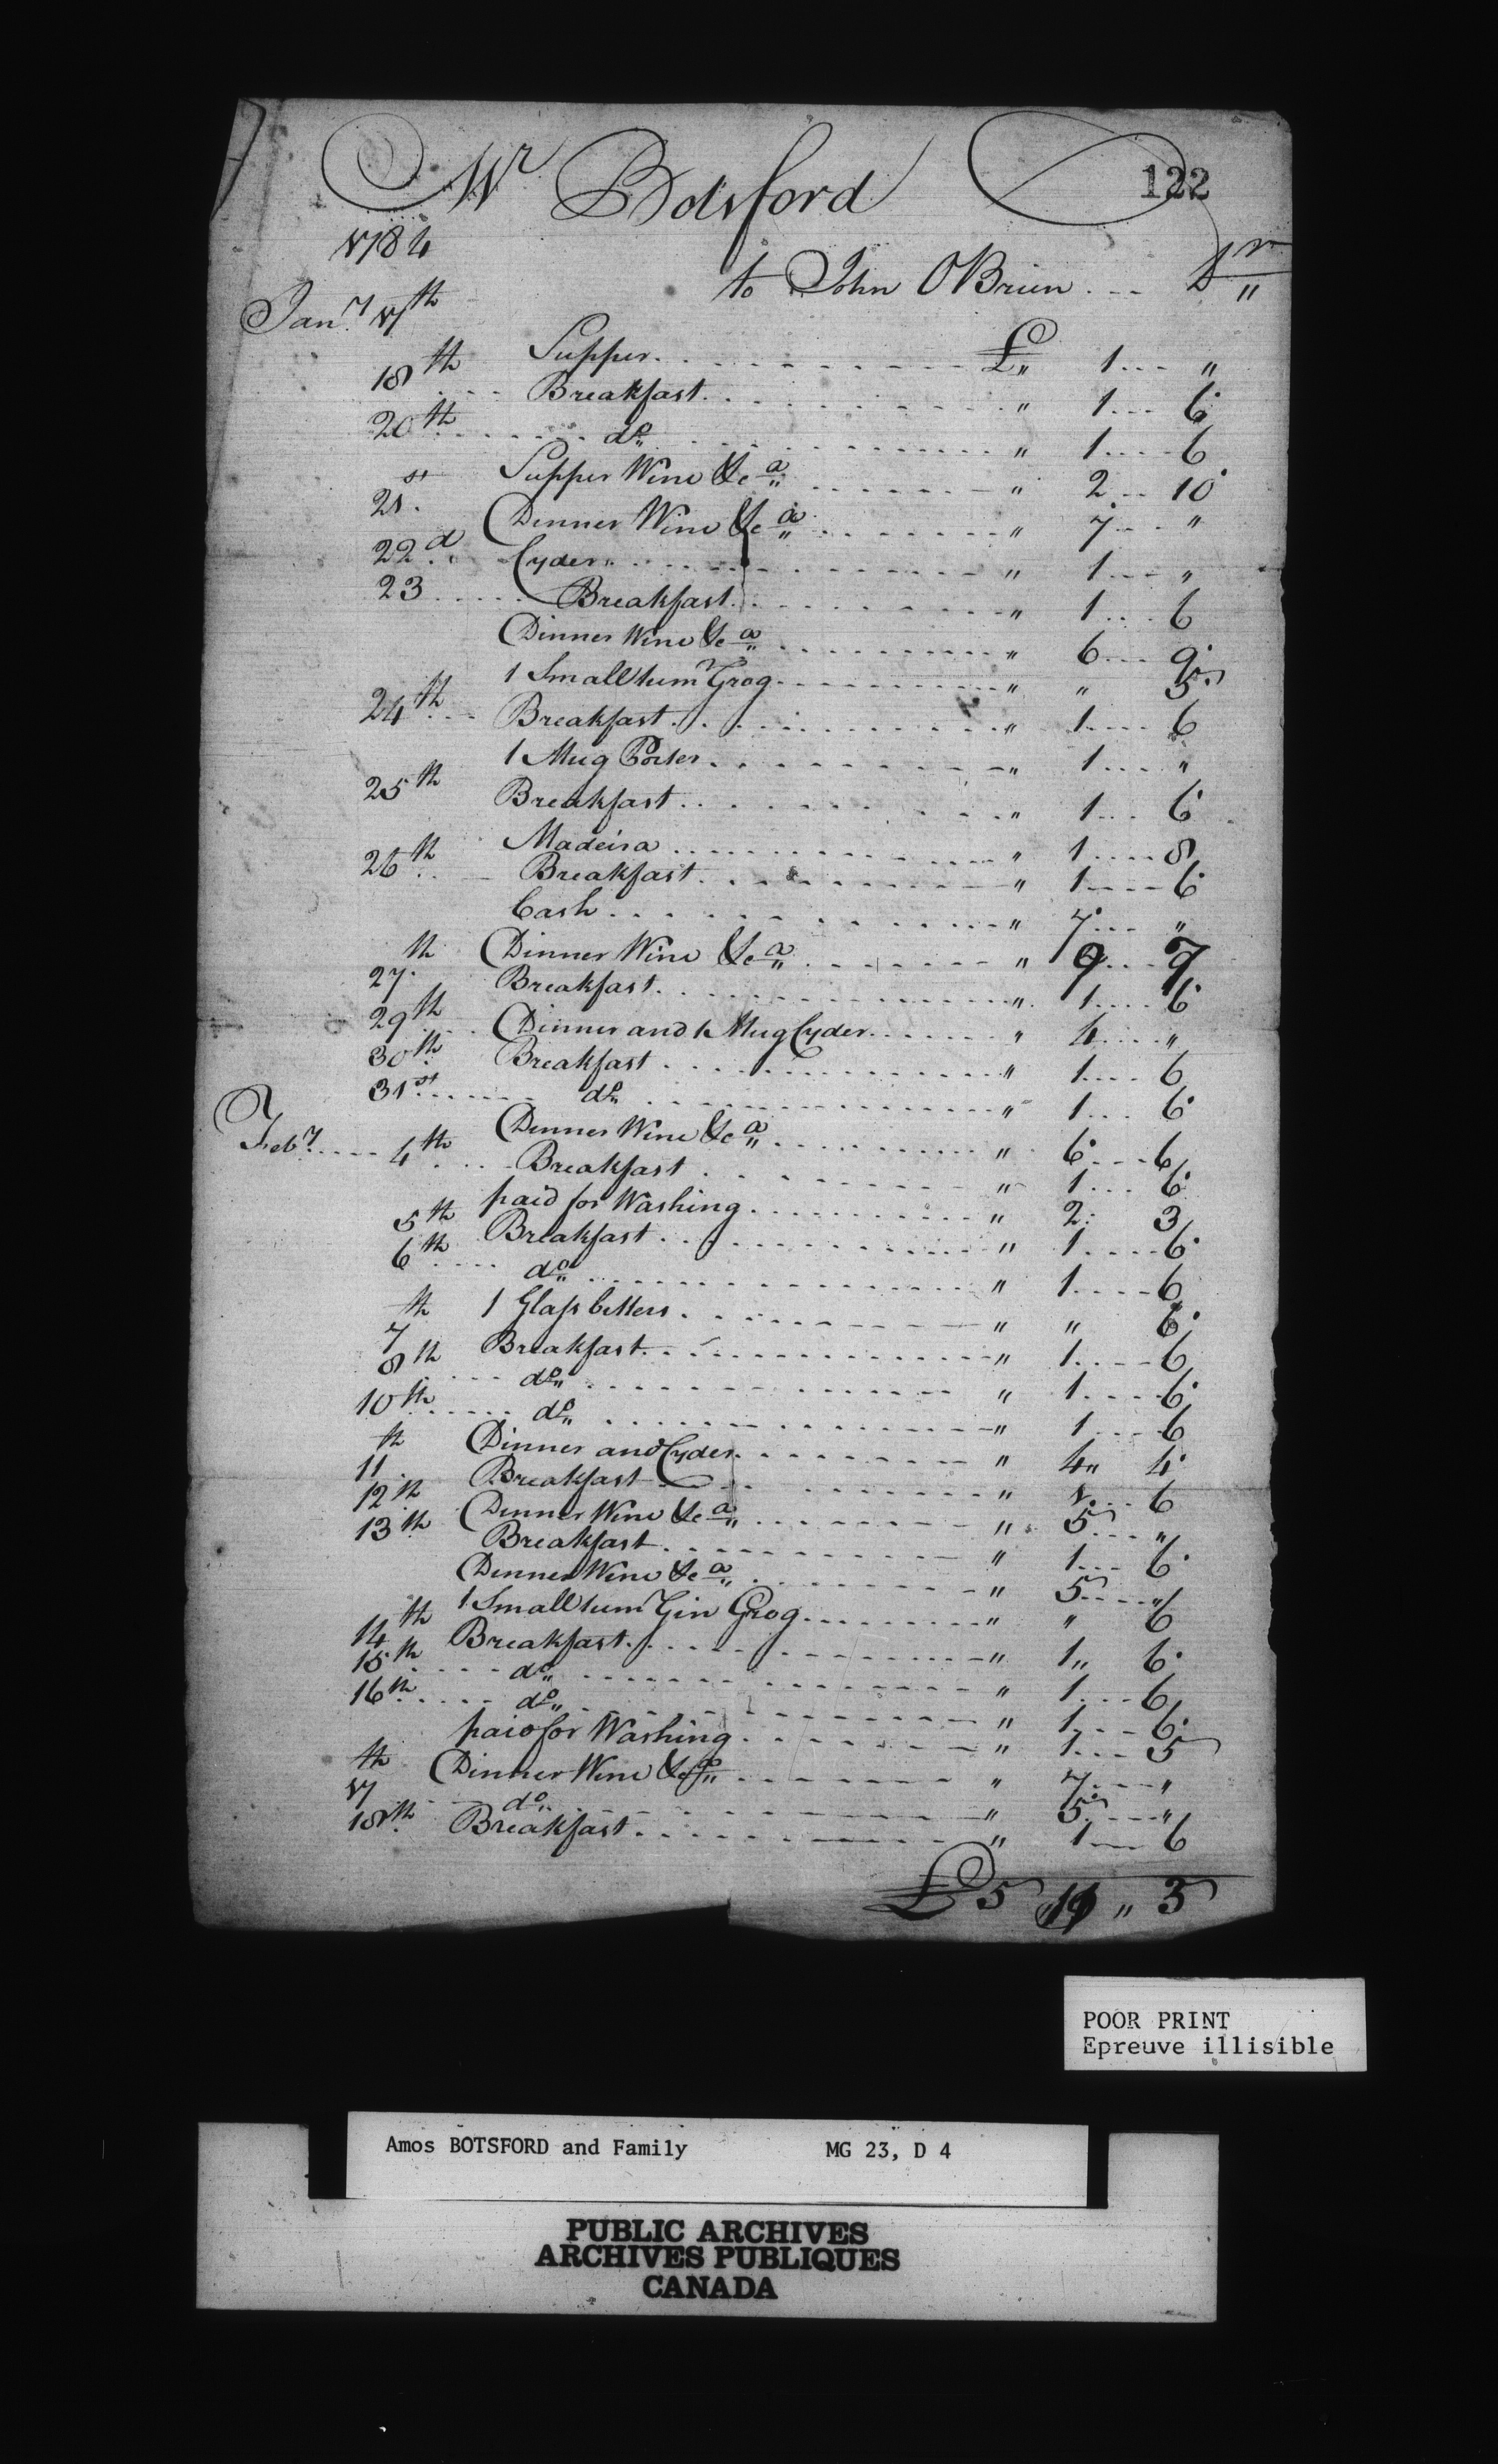 Mr Botsford
122
1784
to John OBrien ... Dr
Jany 17th
Supper £ " 1 "
18th Breakfast " 1 6
20th do " 1 6
Supper Wine &ca " 2 10
21st Dinner Wine &ca " 7 "
22d Cyder " 1 "
23 Breakfast " 1 6
Dinner Wine &ca " 6 9
1 Small tumr Grog " " 5
24th Breakfast " 1 6
1 Mug Porter " 1 "
25th Breakfast " 1 6
Madeira " 1 8
26th Breakfast " 1 6
Cash " 7 "
Dinner Wine &ca " 9 7
27th Breakfast " 1 6
29th Dinner and 1 Mug Cyder " 4 "
30th Breakfast " 1 6
31st do " 1 6
Dinner Wine &ca " 6 6
Feby 4th Breakfast " 1 6
paid for Washing " 2 3
5th Breakfast " 1 6
6th do " 1 6
1 Glass bitters " " 6
7th Breakfast " 1 6
8th do " 1 6
10th do " 1 6
Dinner and Cyder " 4 4
11th Breakfast " 1 6
12th Dinner Wine &ca " 5 "
13th Breakfast " 1 6
Dinner Wine &ca " 5 "
1 Small tumr Gin Grog " " 6
14th Breakfast " 1 6
15th do " 1 6
16th do " 1 6
paid for Washing " 1 5
Dinner Wine &ca " 7 "
17th do " 5 "
18th Breakfast " 1 6
£5 " " 3
POOR PRINT
Epreuve illisible
Amos BOTSFORD and Family MG 23, D 4
PUBLIC ARCHIVES
ARCHIVES PUBLIQUES
CANADA